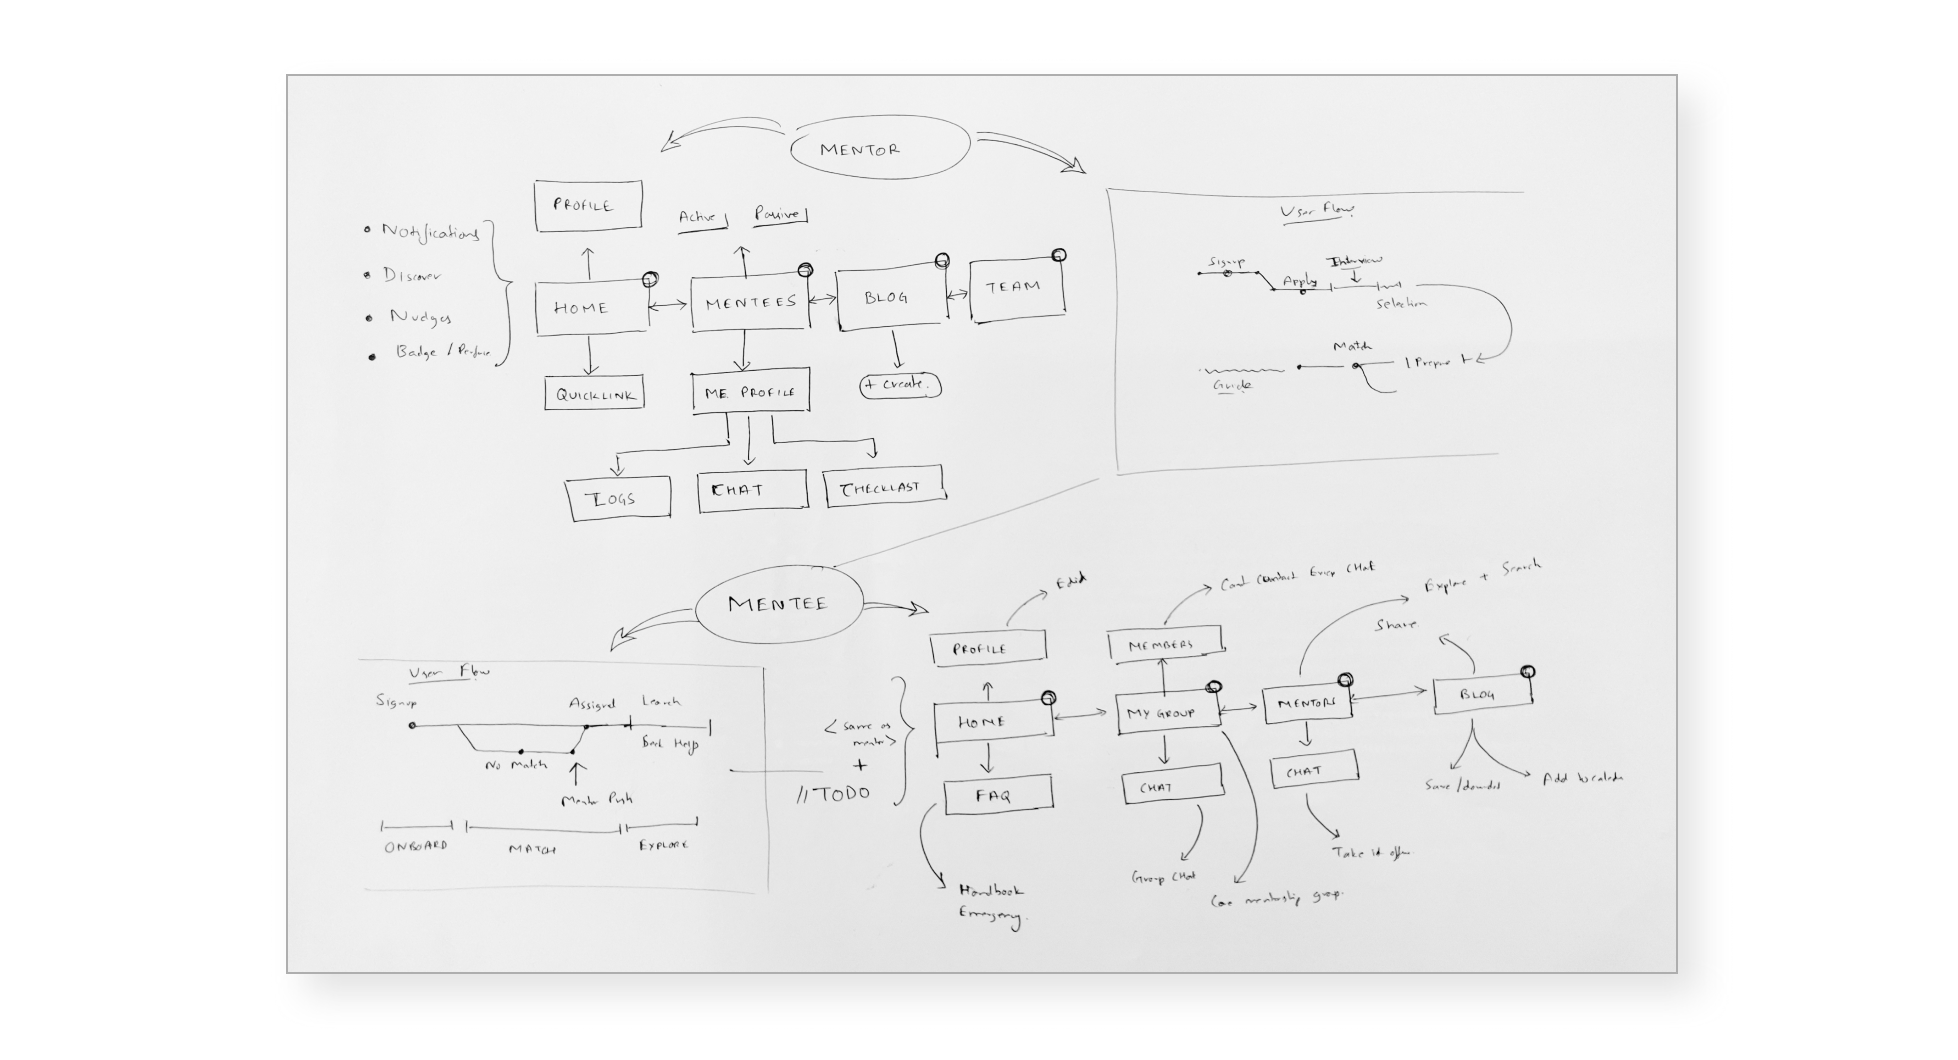 MENTOR
PROFILE
Active
Passive
Notifications
Discover
Nudges
Badge / Profile
HOME
MENTEES
BLOG
TEAM
QUICKLINK
ME PROFILE
+ create.
LOGS
CHAT
CHECKLAST
User Flow
Signup
Apply
Interview
Selection
Match
Prepare
Guide
MENTEE
User Flow
Signup
Assigned
No Match
Mentor Push
ONBOARD
MATCH
EXPLORE
Edit
PROFILE
< same as
mentor >
+
// TODO
HOME
FAQ
Handbook
Emergency.
Chat
MEMBERS
MY GROUP
CHAT
Group Chat
mentorship group.
Explore + Search
MENTORS
CHAT
Take it
Share
BLOG
Save /
Add to